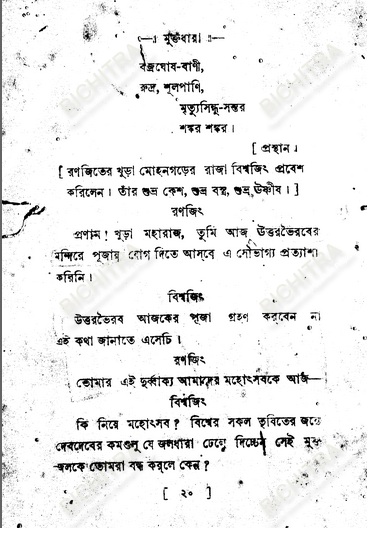 মুক্তধারা
বজ্রঘোষ-বাণী,
রুদ্র, শূলপাণি,
মৃত্যুসিন্ধু-সন্তর
শঙ্কর শঙ্কর।
[ প্রস্থান।
[ রণজিতের খুড়া মোহনগড়ের রাজা বিশ্বজিৎ প্রবেশ
করিলেন। তাঁর শুভ্র কেশ, শুভ্র বস্ত্র, শুভ্র উষ্ণীষ। ]
রণজিৎ
প্রণাম! খুড়া মহারাজ, তুমি আজ উত্তরভৈরবের
মন্দিরে পূজায় যোগ দিতে আসবে এ সৌভাগ্য প্রত্যাশা
করিনি।
বিশ্বজিৎ
উত্তরভৈরব আজকের পূজা গ্রহণ করবেন না
এই কথা জানাতে এসেচি।
রণজিৎ
তোমার এই দুর্ব্বাক্য আমাদের মহোৎসবকে আজ—
বিশ্বজিৎ
কি নিয়ে মহোৎসব? বিশ্বের সকল তৃষিতের জন্যে
দেবদেবের কমণ্ডলু যে জলধারা ঢেলে দিচ্চেন সেই মুক্ত
জলকে তোমরা বন্ধ করলে কেন?
[ ২০ ]
BICHITRA